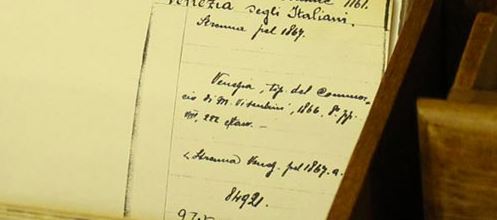 1161.
Venezia segli Italiani.
Strenna pel 1867.
Venezia, tip. del Commer-
cio di M. Visentini, 1866. 8° pp.
222
Strenna Venez. pel 1867. a.
84921.